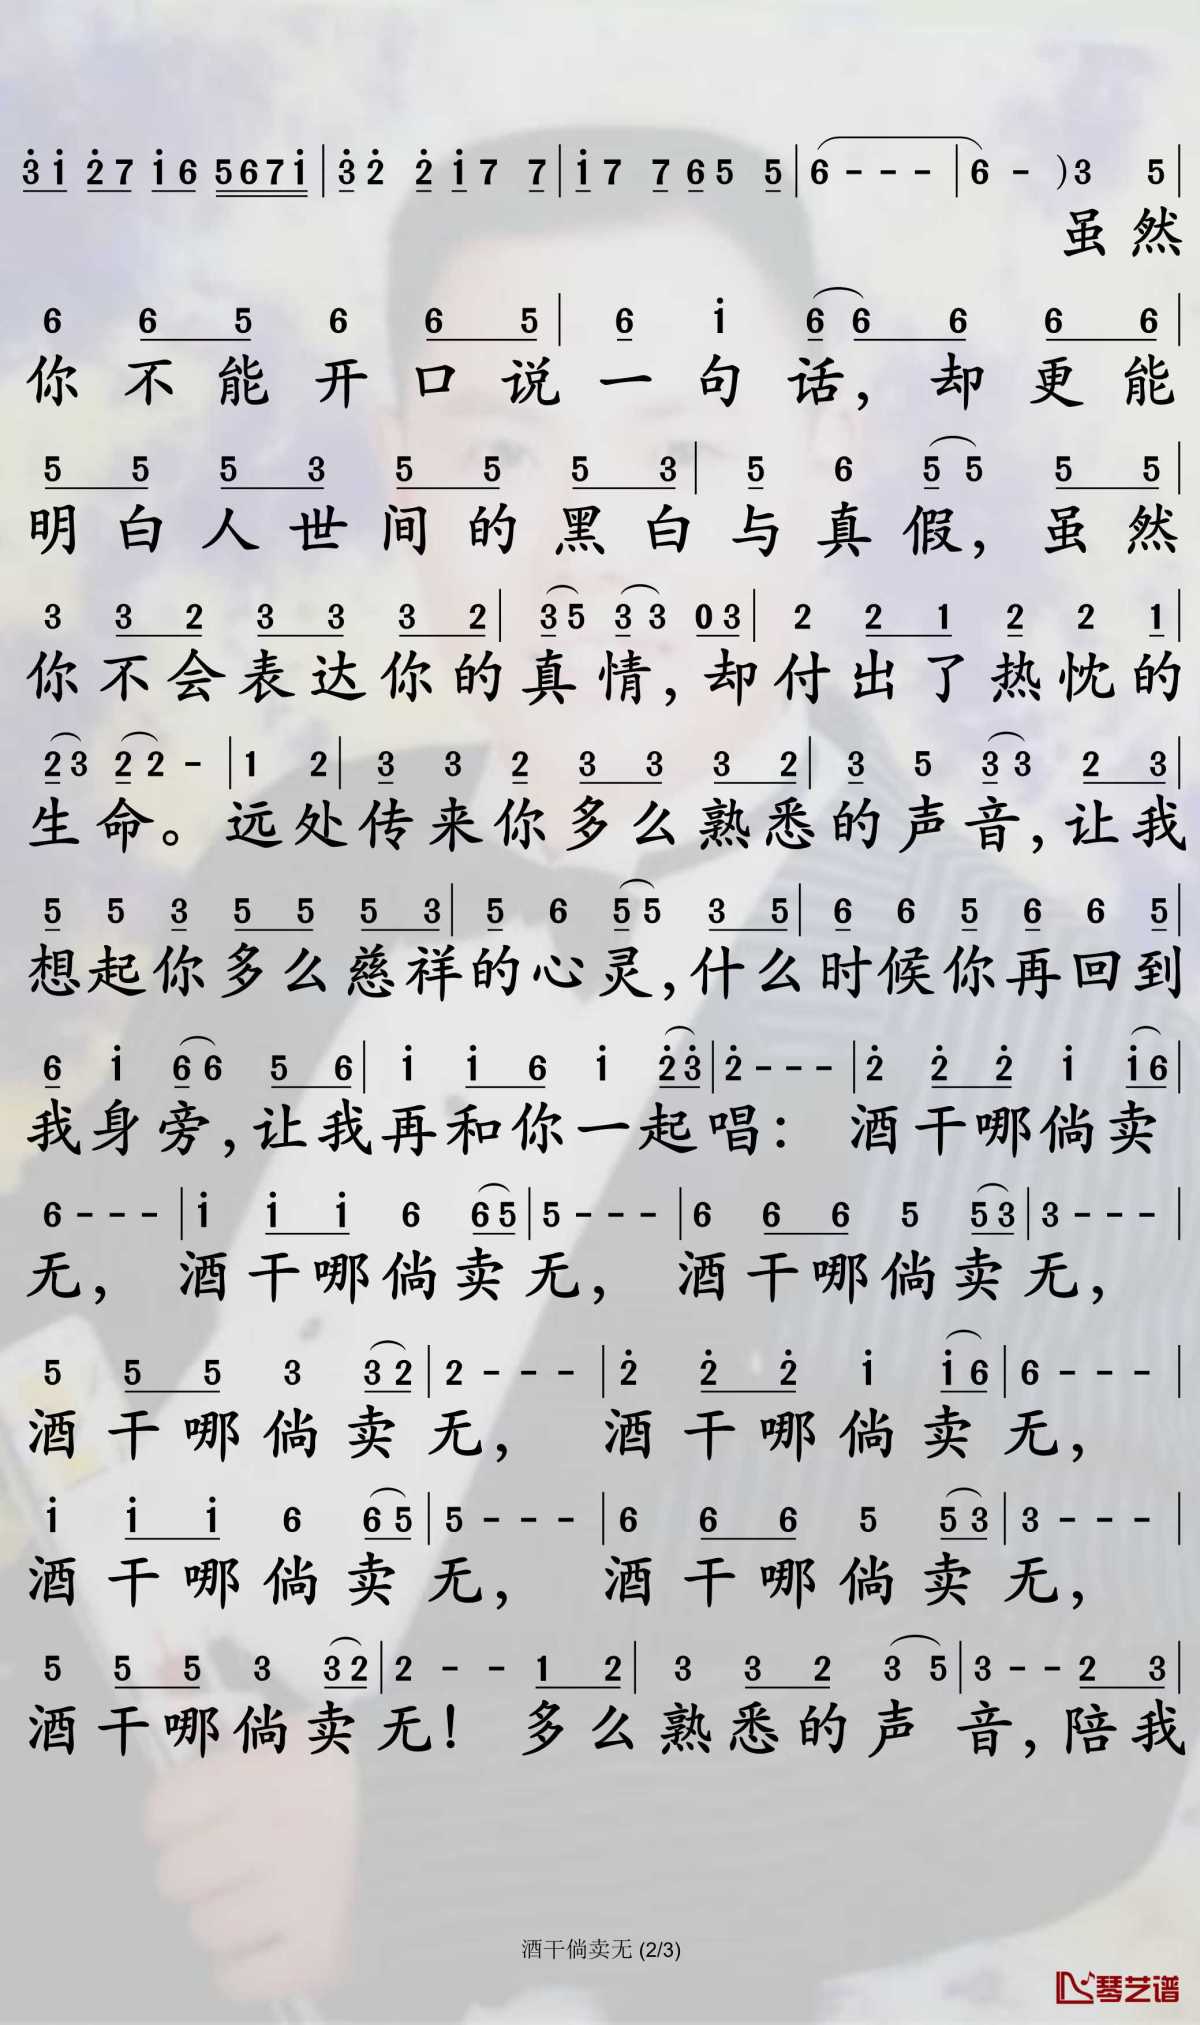 3̇ 1̇ 2̇ 7 1̇ 6 5 6 7 1̇ | 3̇ 2̇ 2̇ 1̇ 7 7 | 1̇ 7 7 6 5 5 | 6 - - - | 6 - ) 3 5 |
虽然
6 6 5 6 6 5 | 6 1̇ 6 6 6 6 6 |
你不能开口说一句话，却更能
5 5 5 3 5 5 5 3 | 5 6 5 5 5 5 |
明白人世间的黑白与真假，虽然
3 3 2 3 3 3 2 | 3 5 3 3 0 3 | 2 2 1 2 2 1 |
你不会表达你的真情，却付出了热忱的
2 3 2 2 - | 1 2 | 3 3 2 3 3 3 2 | 3 5 3 3 2 3 |
生命。远处传来你多么熟悉的声音，让我
5 5 3 5 5 5 3 | 5 6 5 5 3 5 | 6 6 5 6 6 5 |
想起你多么慈祥的心灵，什么时候你再回到
6 1̇ 6 6 5 6 | 1̇ 1̇ 6 1̇ 2̇ 3̇ | 2̇ - - - | 2̇ 2̇ 2̇ 1̇ 1̇ 6 |
我身旁，让我再和你一起唱：酒干哪倘卖
6 - - - | 1̇ 1̇ 1̇ 6 6 5 | 5 - - - | 6 6 6 5 5 3 | 3 - - - |
无，酒干哪倘卖无，酒干哪倘卖无，
5 5 5 3 3 2 | 2 - - - | 2̇ 2̇ 2̇ 1̇ 1̇ 6 | 6 - - - |
酒干哪倘卖无，酒干哪倘卖无，
1̇ 1̇ 1̇ 6 6 5 | 5 - - - | 6 6 6 5 5 3 | 3 - - - |
酒干哪倘卖无，酒干哪倘卖无，
5 5 5 3 3 2 | 2 - - 1 2 | 3 3 2 3 5 | 3 - - 2 3 |
酒干哪倘卖无！多么熟悉的声音，陪我
酒干倘卖无 (2/3)
琴艺谱